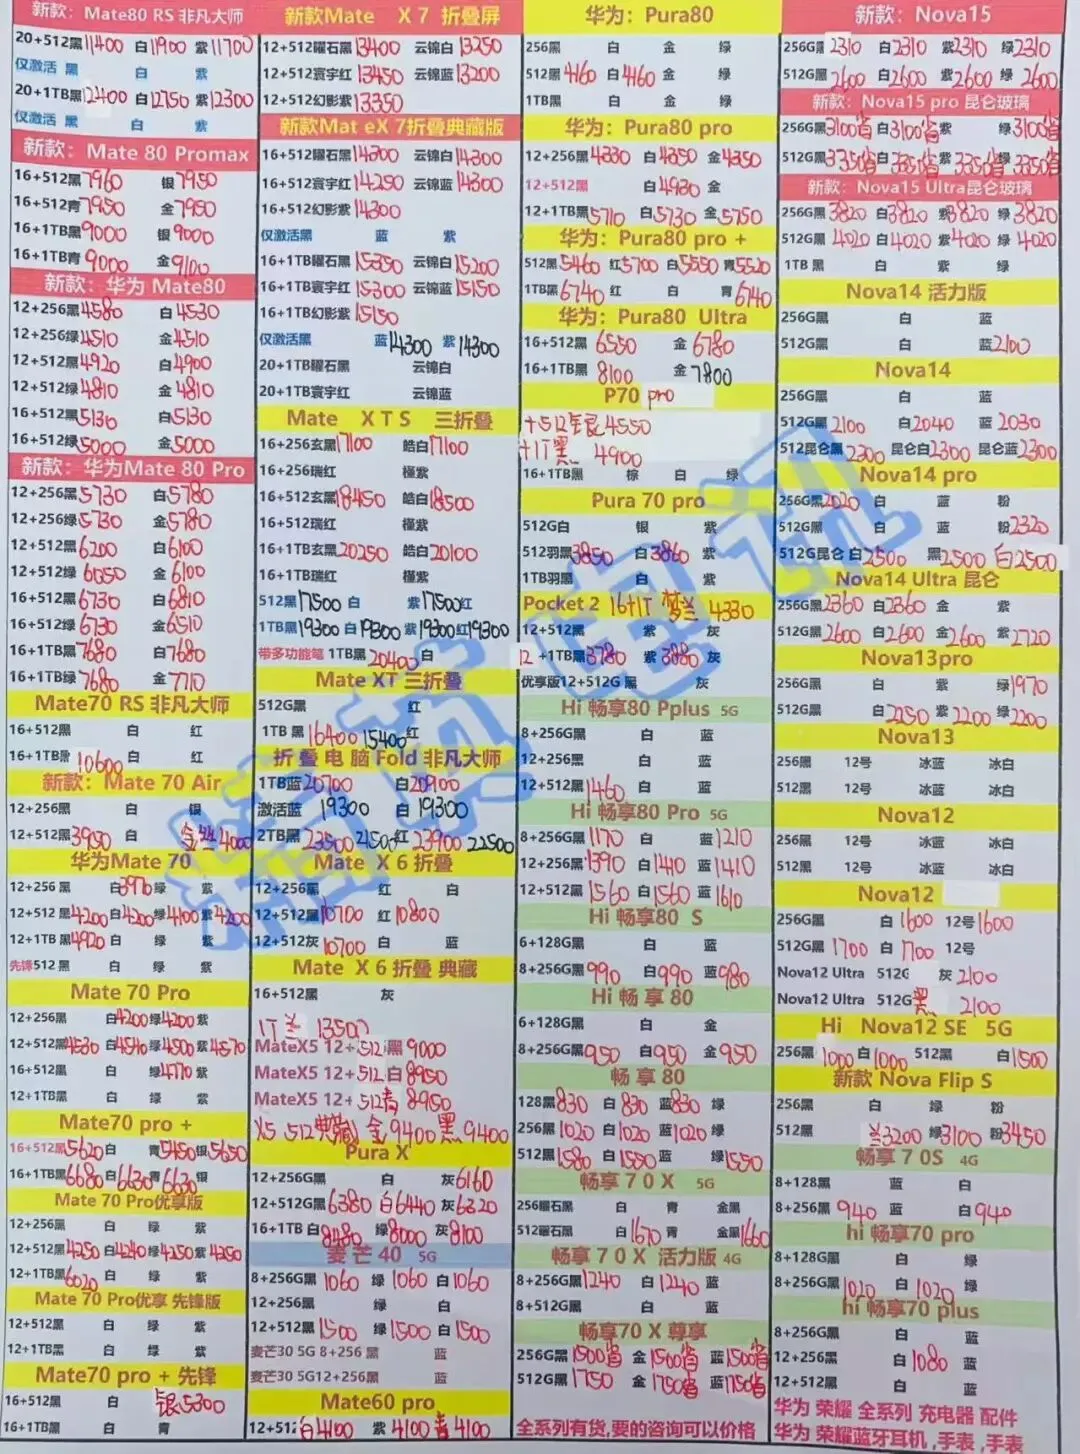 新款：Mate80 RS 非凡大师
20+512黑11400 白11900 紫11700
仅激活 黑 白 紫
20+1TB黑12400 白12750 紫12300
仅激活 黑 白 紫
新款：Mate 80 Promax
16+512黑7960 银7950
16+512青7950 金7950
16+1TB黑9000 银9000
16+1TB青9000 金9100
新款：华为 Mate80
12+256黑4580 白4530
12+256绿4510 金4510
12+512黑4920 白4900
12+512绿4810 金4810
16+512黑5130 白5130
16+512绿5000 金5000
新款：华为Mate 80 Pro
12+256黑5730 白5780
12+256绿5730 金5780
12+512黑6200 白6100
12+512绿6050 金6100
16+512黑6730 白6810
16+512绿6730 金6510
16+1TB黑7680 白7680
16+1TB绿7680 金7710
Mate70 RS 非凡大师
16+512黑 白 红
16+1TB黑10600 白 红
新款：Mate 70 Air
12+256黑 白 银
12+512黑3950 白 金 4000
华为Mate 70
12+256黑 白3970 绿 紫
12+512黑4200 白4200 绿4100 紫4200
12+1TB黑4920 白 绿 紫
先锋512黑 白 绿 紫
Mate 70 Pro
12+256黑 白4200 绿4200 紫
12+512黑4530 白4540 绿4500 紫4570
16+512黑 白 绿4770 紫
12+1TB黑 白 绿 紫
Mate70 pro +
16+512黑5620 白 青5450 银5650
16+1TB黑6680 白6630 青6630 银
Mate 70 Pro优享版
12+256黑 白 绿 紫
12+512黑4250 白4240 绿4250 紫4250
12+1TB黑6020 白 绿 紫
Mate 70 Pro优享 先锋版
12+512黑 白 绿 紫
12+1TB黑 白 绿 紫
Mate70 pro + 先锋
16+512黑 白 银5300
16+1TB黑 白 青
新款Mate X 7 折叠屏
12+512曜石黑13400 云锦白13250
12+512寰宇红13450 云锦蓝13200
12+512幻影紫13350
新款Mat eX 7折叠典藏版
16+512曜石黑14300 云锦白14300
16+512寰宇红14250 云锦蓝14300
16+512幻影紫14300
仅激活黑 蓝 紫
16+1TB曜石黑15350 云锦白15200
16+1TB寰宇红15300 云锦蓝15150
16+1TB幻影紫15150
仅激活黑 蓝14300 紫14300
20+1TB曜石黑 云锦白
20+1TB寰宇红 云锦蓝
Mate X T S 三折叠
16+256玄黑17100 皓白17100
16+256瑞红 槿紫
16+512玄黑18450 皓白18500
16+512瑞红 槿紫
16+1TB玄黑20250 皓白20100
16+1TB瑞红 槿紫
512黑17500 白 紫17500红
1TB黑19300 白19300 紫19300红19300
带多功能笔 1TB黑20400白
Mate XT 三折叠
512G黑 红
1TB黑16400 15400红
折 叠 电 脑 Fold 非凡大师
1TB蓝20700 白20900
激活蓝 19300 白 19300
2TB黑23500 21500红 23900 22500
Mate X 6 折叠
12+256黑 红 白
12+512黑10700 红10800
12+512灰10700 白 蓝
Mate X 6 折叠 典藏
16+512黑 灰
1T 兰 13500
MateX5 12+512黑 9000
MateX5 12+512白8950
MateX5 12+512青 8950
X5 512典藏 金9400 黑9400
Pura X
12+256G黑 白 灰6160
12+512G黑6380 白6440 灰6320
16+1TB 白8480 绿8000 灰8100
麦芒 40 5G
8+256G黑1060 绿1060 白1060
12+256黑 绿 白
12+512黑1500 绿1500 白1500
麦芒30 5G 8+256 黑 蓝
麦芒30 5G12+256黑 蓝
Mate60 pro
12+512白4100 紫4100青4100
华为：Pura80
256黑 白 金 绿
512黑4160 白4160 金 绿
1TB黑 白 金 绿
华为：Pura80 pro
12+256黑4330 白4350 金4350
12+512黑 白4930 金
12+1TB黑5710 白5730 金5750
华为：Pura80 pro +
512黑5460 红5700 白5550 青5520
1TB黑6740 红 白 青6740
华为：Pura80 Ultra
16+512黑 6550 金6780
16+1TB黑 8100 金7800
P70 pro
+512银4550
+1T黑 4900
16+1TB黑 棕 白 绿
Pura 70 pro
512G白 银 紫
512羽黑3850 白3860 紫
1TB羽黑 白 紫
Pocket 2 16+1T 梦兰 4330
12+512黑 紫 灰
12 +1TB黑3780 紫3880 灰
优享版12+512G 黑 灰
Hi 畅享80 Pplus 5G
8+256黑 白 蓝
12+256黑 白 蓝
12+512黑1460 白 蓝
Hi 畅享80 Pro 5G
8+256G黑1170 白 蓝1210
12+256黑1390 白1410 蓝1410
12+512黑1560 白1560 蓝1610
Hi 畅享80 S
6+128G黑 白 蓝
8+256G黑990 白990 蓝980
Hi 畅 享 80
6+128G黑 白 金
8+256G黑950 白950 金950
畅 享 80
128黑830 白830 蓝830 绿
256黑1020 白1020 蓝1020 绿
512黑1580 白1550 蓝 绿1550
畅享 7 0 X 5G
256曜石黑 白 青 金黑
512曜石黑 白1670 青 金黑1660
畅享 7 0 X 活力版 4G
8+256G黑1240 白1240 蓝
8+512G黑 白 蓝
畅享70 X 尊享
256G黑1500省 金1500省 蓝1500省
512G黑1750 金1750省 蓝1750省
全系列有货,要的咨询可以价格
新款：Nova15
256G黑2310 白2310 紫2310 绿2310
512G黑2600 白2600 紫2600 绿2600
新款：Nova15 pro 昆仑玻璃
256G黑3100省 白3100省 紫 绿3100省
512G黑3350省 白3350省 紫3350省 绿3350省
新款：Nova15 Ultra昆仑玻璃
256G黑3820 白3820 紫3820 绿3820
512G黑4020 白4020 紫4020 绿4020
1TB黑 白 紫 绿
Nova14 活力版
256G黑 白 蓝
512G黑 白 蓝2100
Nova14
256G黑 白 蓝
512G黑2100 白2040 蓝2030
512昆仑黑2300 昆仑白2300 昆仑蓝2300
Nova14 pro
256G黑2020 白 蓝 粉
512G黑 白 蓝 粉2320
512G昆仑 白2500 黑2500 白2500
Nova14 Ultra 昆仑
256G黑2360 白2360 金 紫
512G黑2600 白2600 金2600 紫2720
Nova13pro
256G黑 白 紫 绿1970
512G黑 白2250 紫2200 绿2200
Nova13
256黑 12号 冰蓝 冰白
512黑 12号 冰蓝 冰白
Nova12
256黑 12号 冰蓝 冰白
512黑 12号 冰蓝 冰白
Nova12
256G黑 白1600 12号1600
512G黑1700 白1700 12号
Nova12 Ultra 512G 灰2100
Nova12 Ultra 512G黑 2100
Hi Nova12 SE 5G
256黑1000 白1000 512黑 白1500
新款 Nova Flip S
256黑 白 绿 粉
512黑 兰3200 绿3100 粉3450
畅享 7 0S 4G
8+128黑 蓝 白
8+256黑940 蓝 白940
hi 畅享70 pro
8+128G黑 白 绿
8+256G黑1020 白1020 绿
hi 畅享70 plus
8+256G黑 白 蓝
12+256黑 白1080 蓝
12+512黑 白 蓝
华为 荣耀 全系列 充电器 配件
华为 荣耀蓝牙耳机 ,手表 ,手表